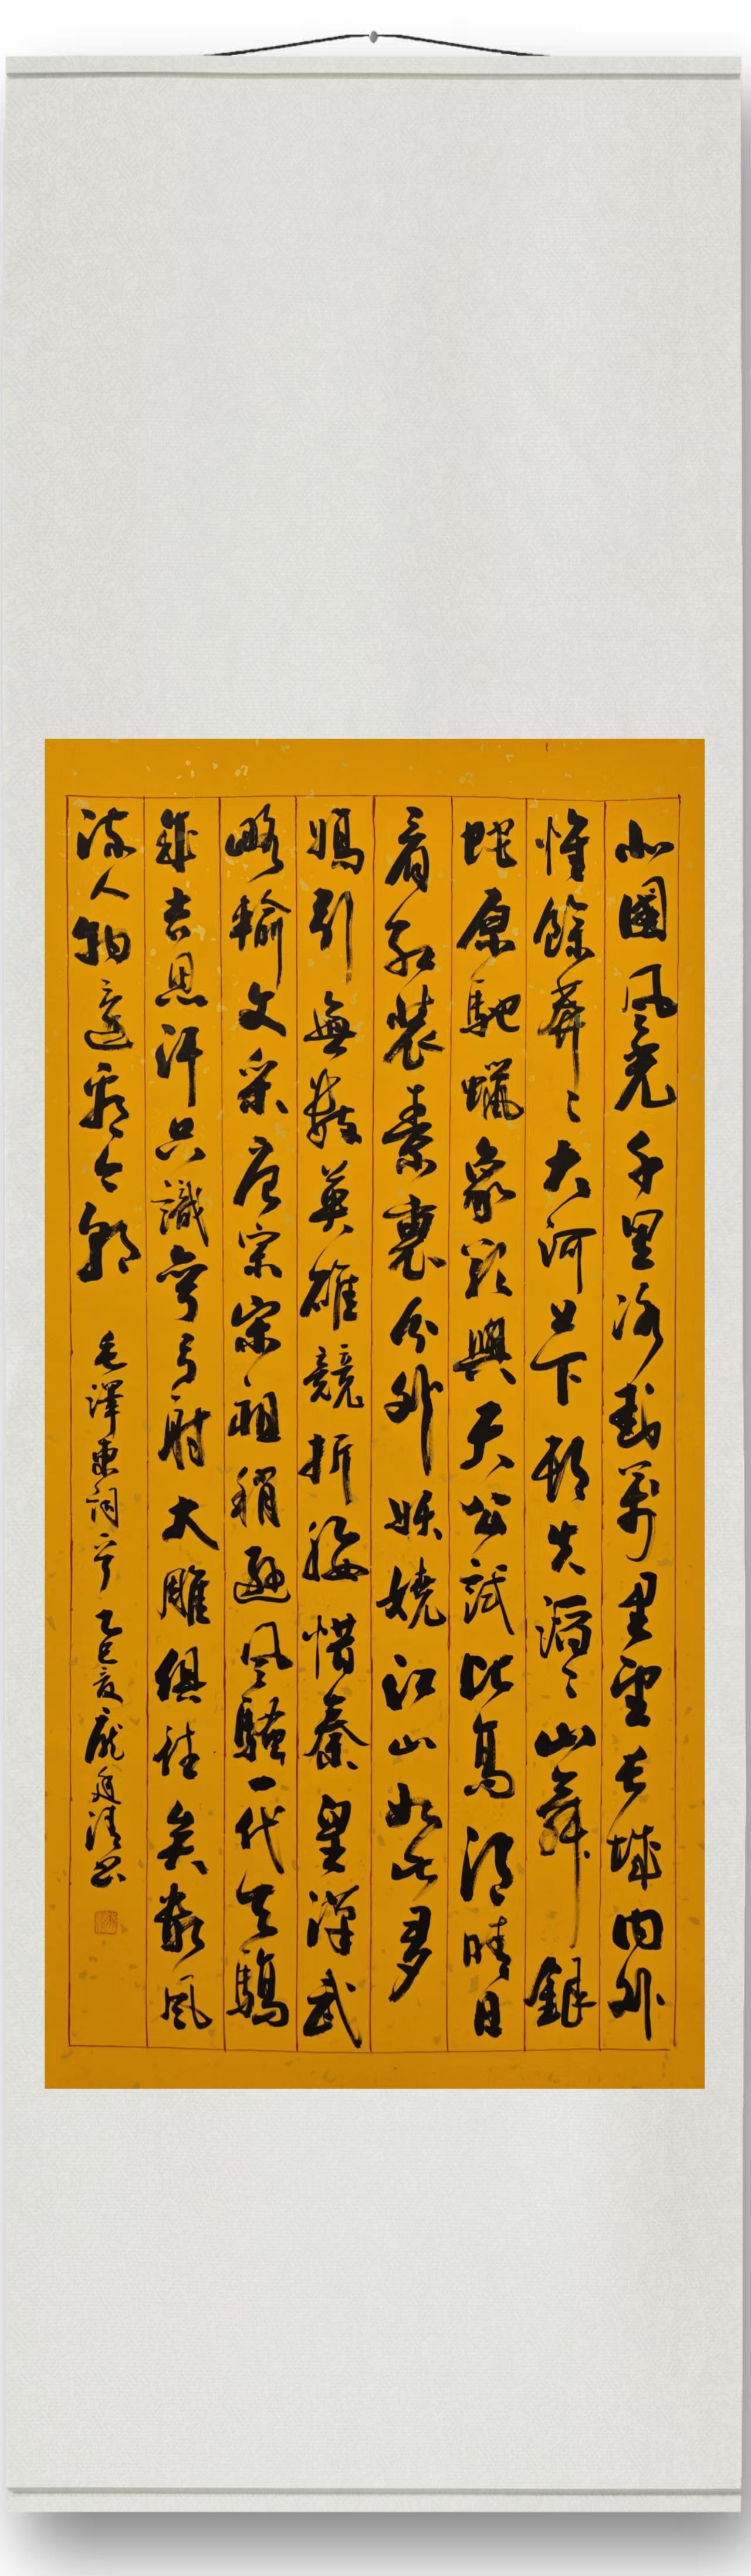 北國风光千里冰封萬里望長城内外
惟餘莽〻大河上下頓失滔〻山舞銀
蛇原馳蠟象欲與天公試比高須晴日
看紅裝素裹分外妖嬈江山如此多
嬌引無數英雄競折腰惜秦皇漢武
略輸文采唐宗宋祖稍遜风騷一代天驕
成吉思汗只識彎弓射大雕俱往矣數風
流人物還看今朝 毛澤東詞 乙巳夏龐庭清书